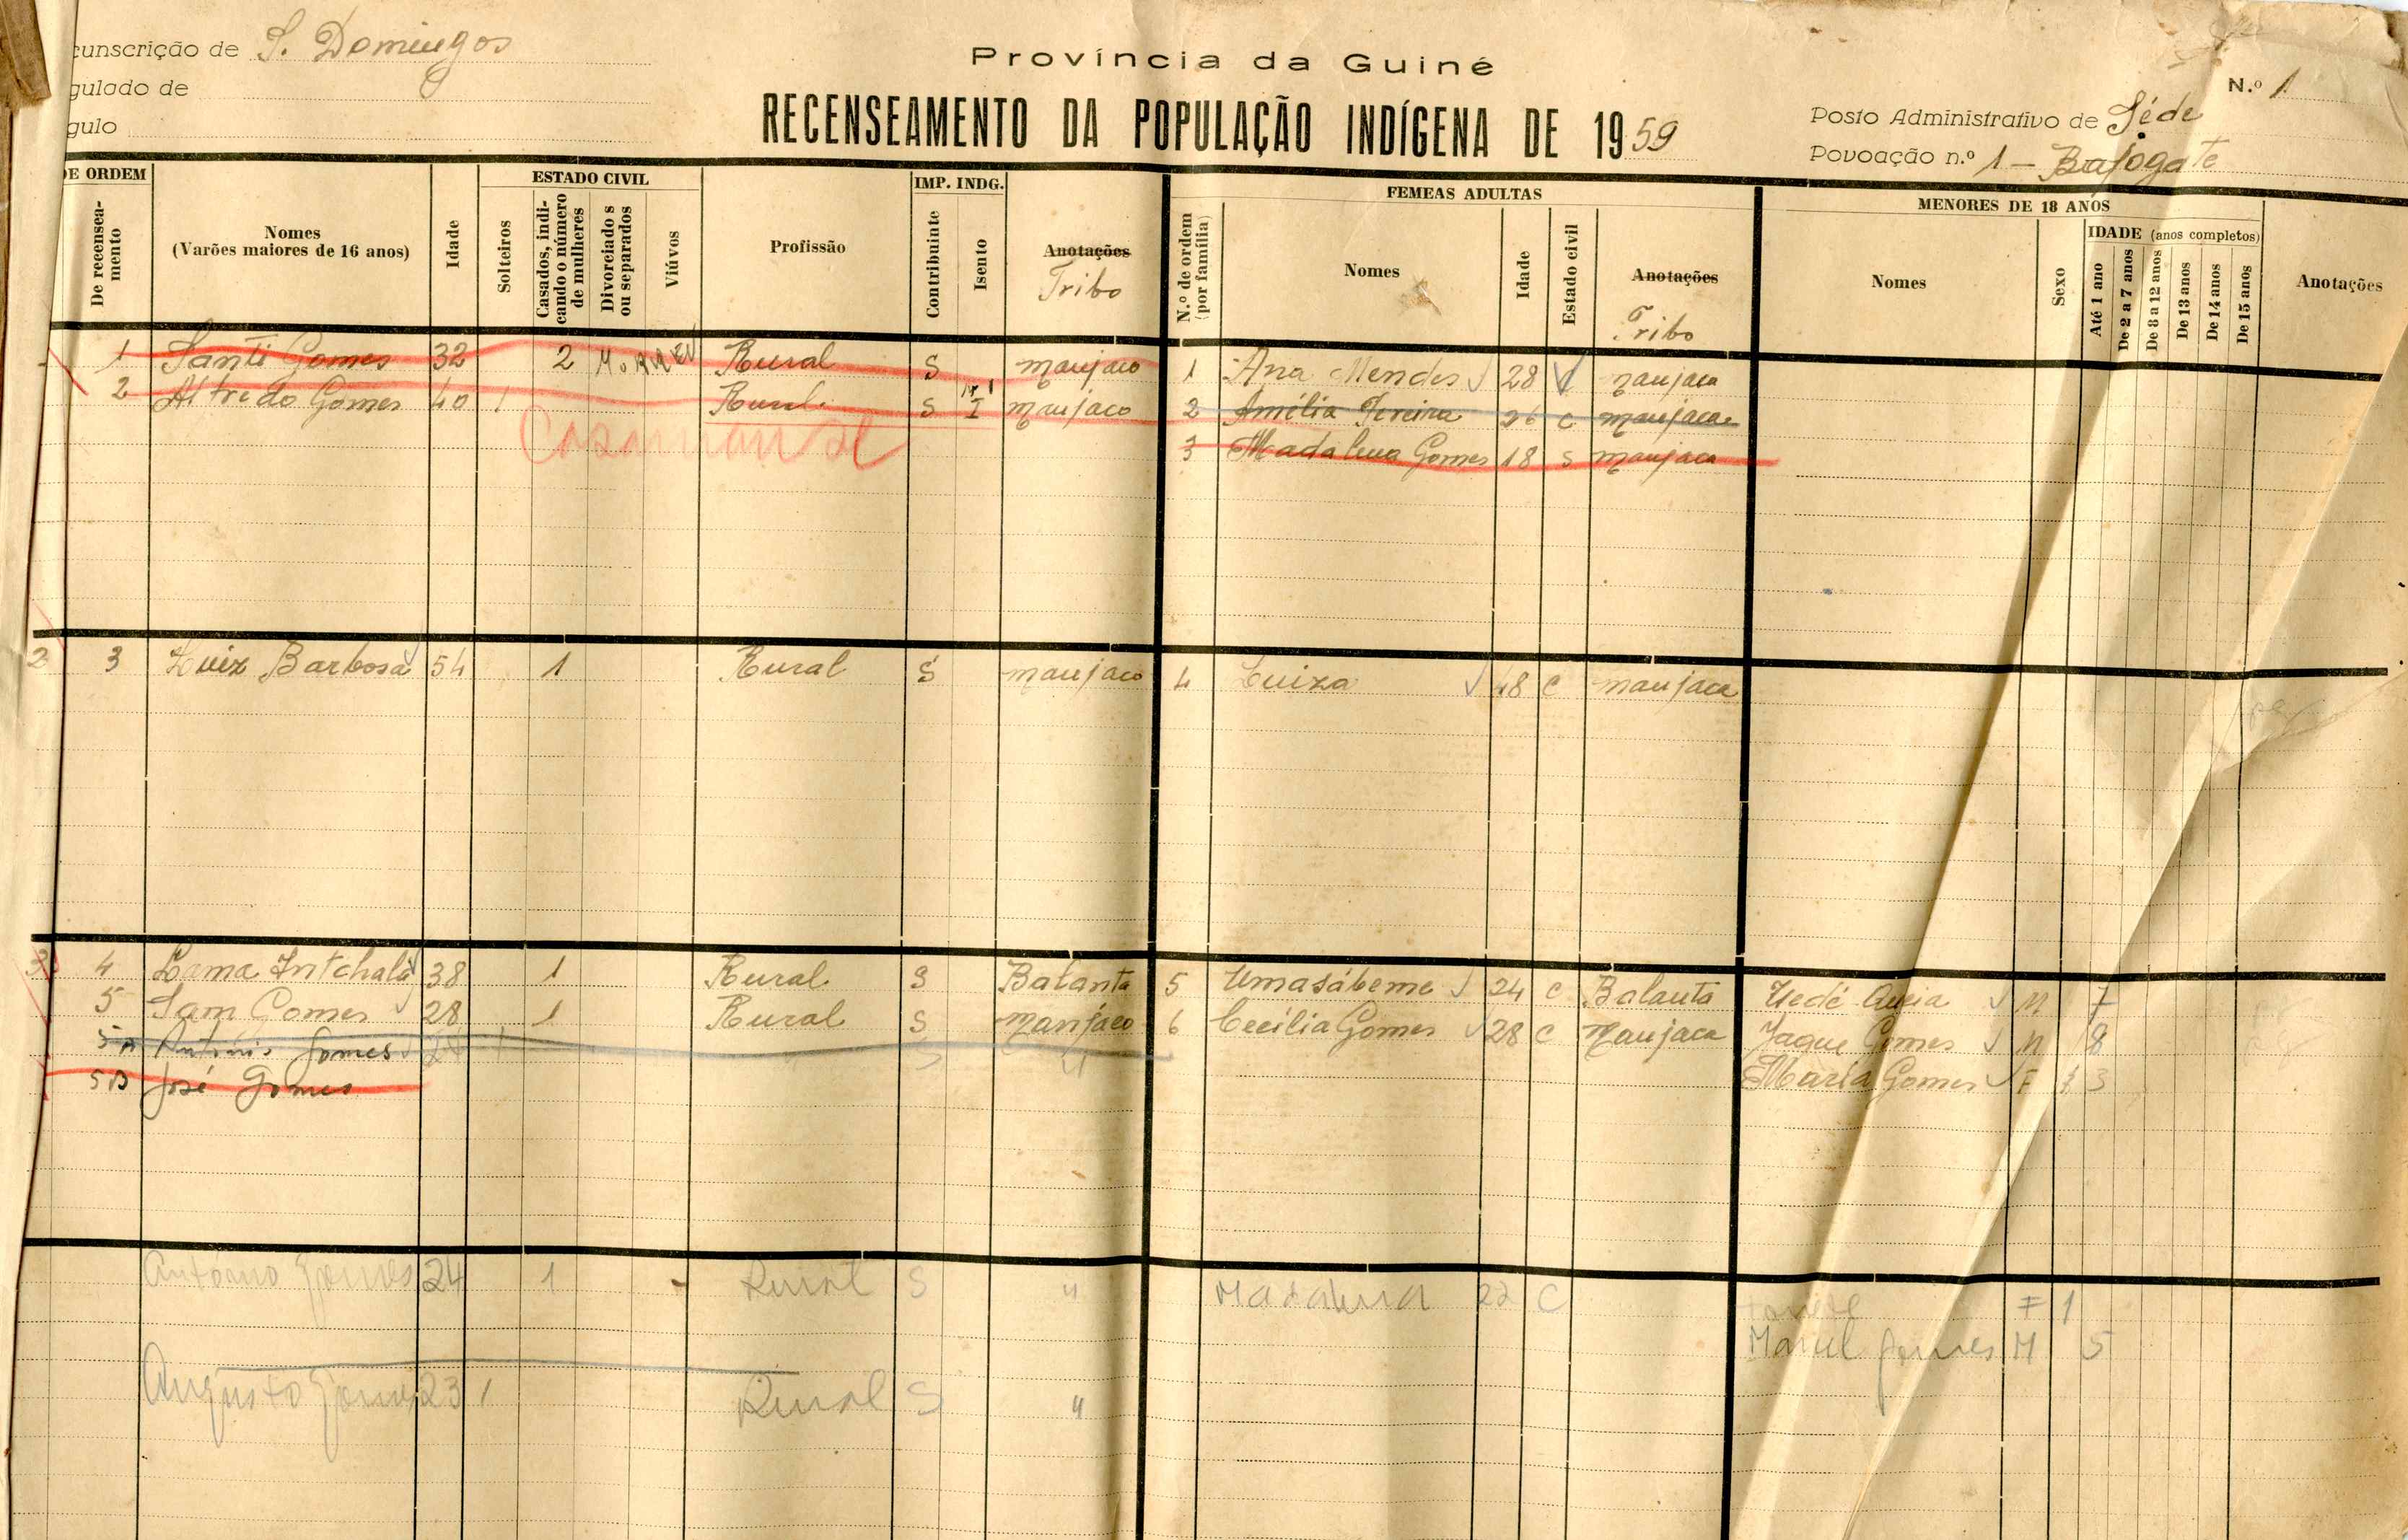 cunscrição de S. Domingos
gulado de
gulo
Província da Guiné
RECENSEAMENTO DA POPULAÇÃO INDÍGENA DE 1959
N.º 1
Posto Administrativo de Séde
Povoação n.º 1 - Bajogate
DE ORDEM
De recenseamento
Nomes
(Varões maiores de 16 anos)
Idade
ESTADO CIVIL
Solteiros
Casados, indicando o número de mulheres
Divorciados ou separados
Viúvos
Profissão
IMP. INDG.
Contribuinte
Isento
Anotações
Tribo
FEMEAS ADULTAS
N.º de ordem (por família)
Nomes
Idade
Estado civil
Anotações
Tribo
MENORES DE 18 ANOS
Nomes
Sexo
IDADE (anos completos)
Até 1 ano
De 2 a 7 anos
De 8 a 12 anos
De 13 anos
De 14 anos
De 15 anos
Anotações
1 Santi Gomes 32 2 Rural S manjaco 1 Ana Mendes 28 V manjaca
2 Alfredo Gomes 40 1 Rural S I manjaco 2 Amélia Pereira 26 C manjaca
3 Madalena Gomes 18 S manjaca
2 3 Luiz Barbosa 54 1 Rural S manjaco 4 Luiza 48 C manjaca
3 4 Lama Intchalá 38 1 Rural S Balanta 5 Umasábeme 24 C Balanta M 7
5 Sam Gomes 28 1 Rural S manjaco 6 Cecília Gomes 28 C manjaca Jaque Gomes M 8
5A António Gomes S " Maria Gomes F 3
5B José Gomes
Antonio Gomes 24 1 Rural S " Madalena 22 C F 1
Gomes M 5
Augusto Gomes 23 1 Rural S "